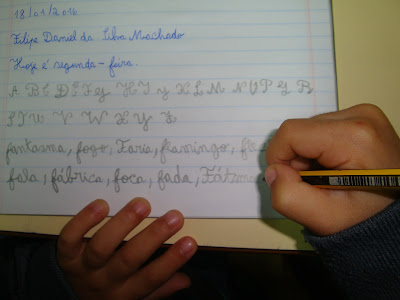 18/01/2016
Filipe Daniel da Silva Machado
Hoje é segunda-feira.
A B C D E F G H I J K L M N O P Q R
S T U V W X Y Z
fantasma, fogo, Faria, flamingo,
fala, fábrica, foca, fada, Fátima